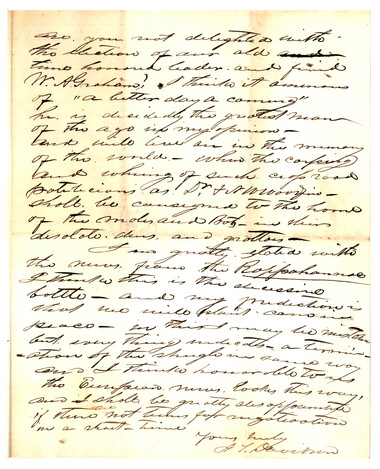 are you not delighted with
the election of our old and
time honored leader and friend
W. A. Graham? I think it ominous
of "a better day a coming"
he is decidedly the greatest man
of the age in my opinion —
and will live on in the memory
of the world — when the
and whining of such cross road
politicians as Dr
shall be consigned to the home
of the moles and Bats — in their
desolate dens and grottos —
I am greatly elated with
the news from the Rappahannock
I think this is the decissive
battle — and my prediction is
that we will
peace — in this I may be mistaken
but every thing indicates a termin-
-ation of the struggle in some way
and I think honorable to us
the European news looks this way,
and I shall be greatly disappointed
if there not terms for negotiation
in a short time
Yours truly
Davidson